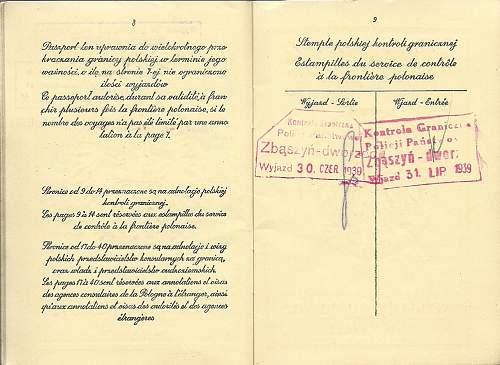 8
Paszport ten uprawnia do wielokrotnego prze-
kraczania granicy polskiej w terminie jego
ważności, o ile na stronie 7-ej nie ograniczono
ilości wyjazdów
Ce passeport autorise, durant sa validité, à fran-
chir plusieurs fois la frontière polonaise, si le
nombre des voyages n'a pas été limité par une anno-
tation à la page 7.
Stronice od 9 do 14 przeznaczone są na adnotacje polskiej
kontroli granicznej.
Les pages 9 à 14 sont réservées aux estampilles du service
de contrôle à la frontière polonaise.
Stronice od 17 do 40 przeznaczone są na adnotacje i wizy
polskich przedstawicielstw konsularnych za granicą,
oraz władz i przedstawicielstw cudzoziemskich.
Les pages 17 à 40 sont réservées aux annotations et visas
des agences consulaires de la Pologne à l'étranger, ainsi
qu'aux annotations et visas des autorités et des agences
étrangères
9
Stemple polskiej kontroli granicznej
Estampilles du service de contrôle
à la frontière polonaise
Wyjazd - Sortie Wjazd - Entrée
Kontrola Graniczna
Zbąszyń-dworzec
Wyjazd 30. CZER 1939
Kontrola Graniczna
Policji Państwo
Zbąszyń - dworz
Wjazd 31. LIP 1939